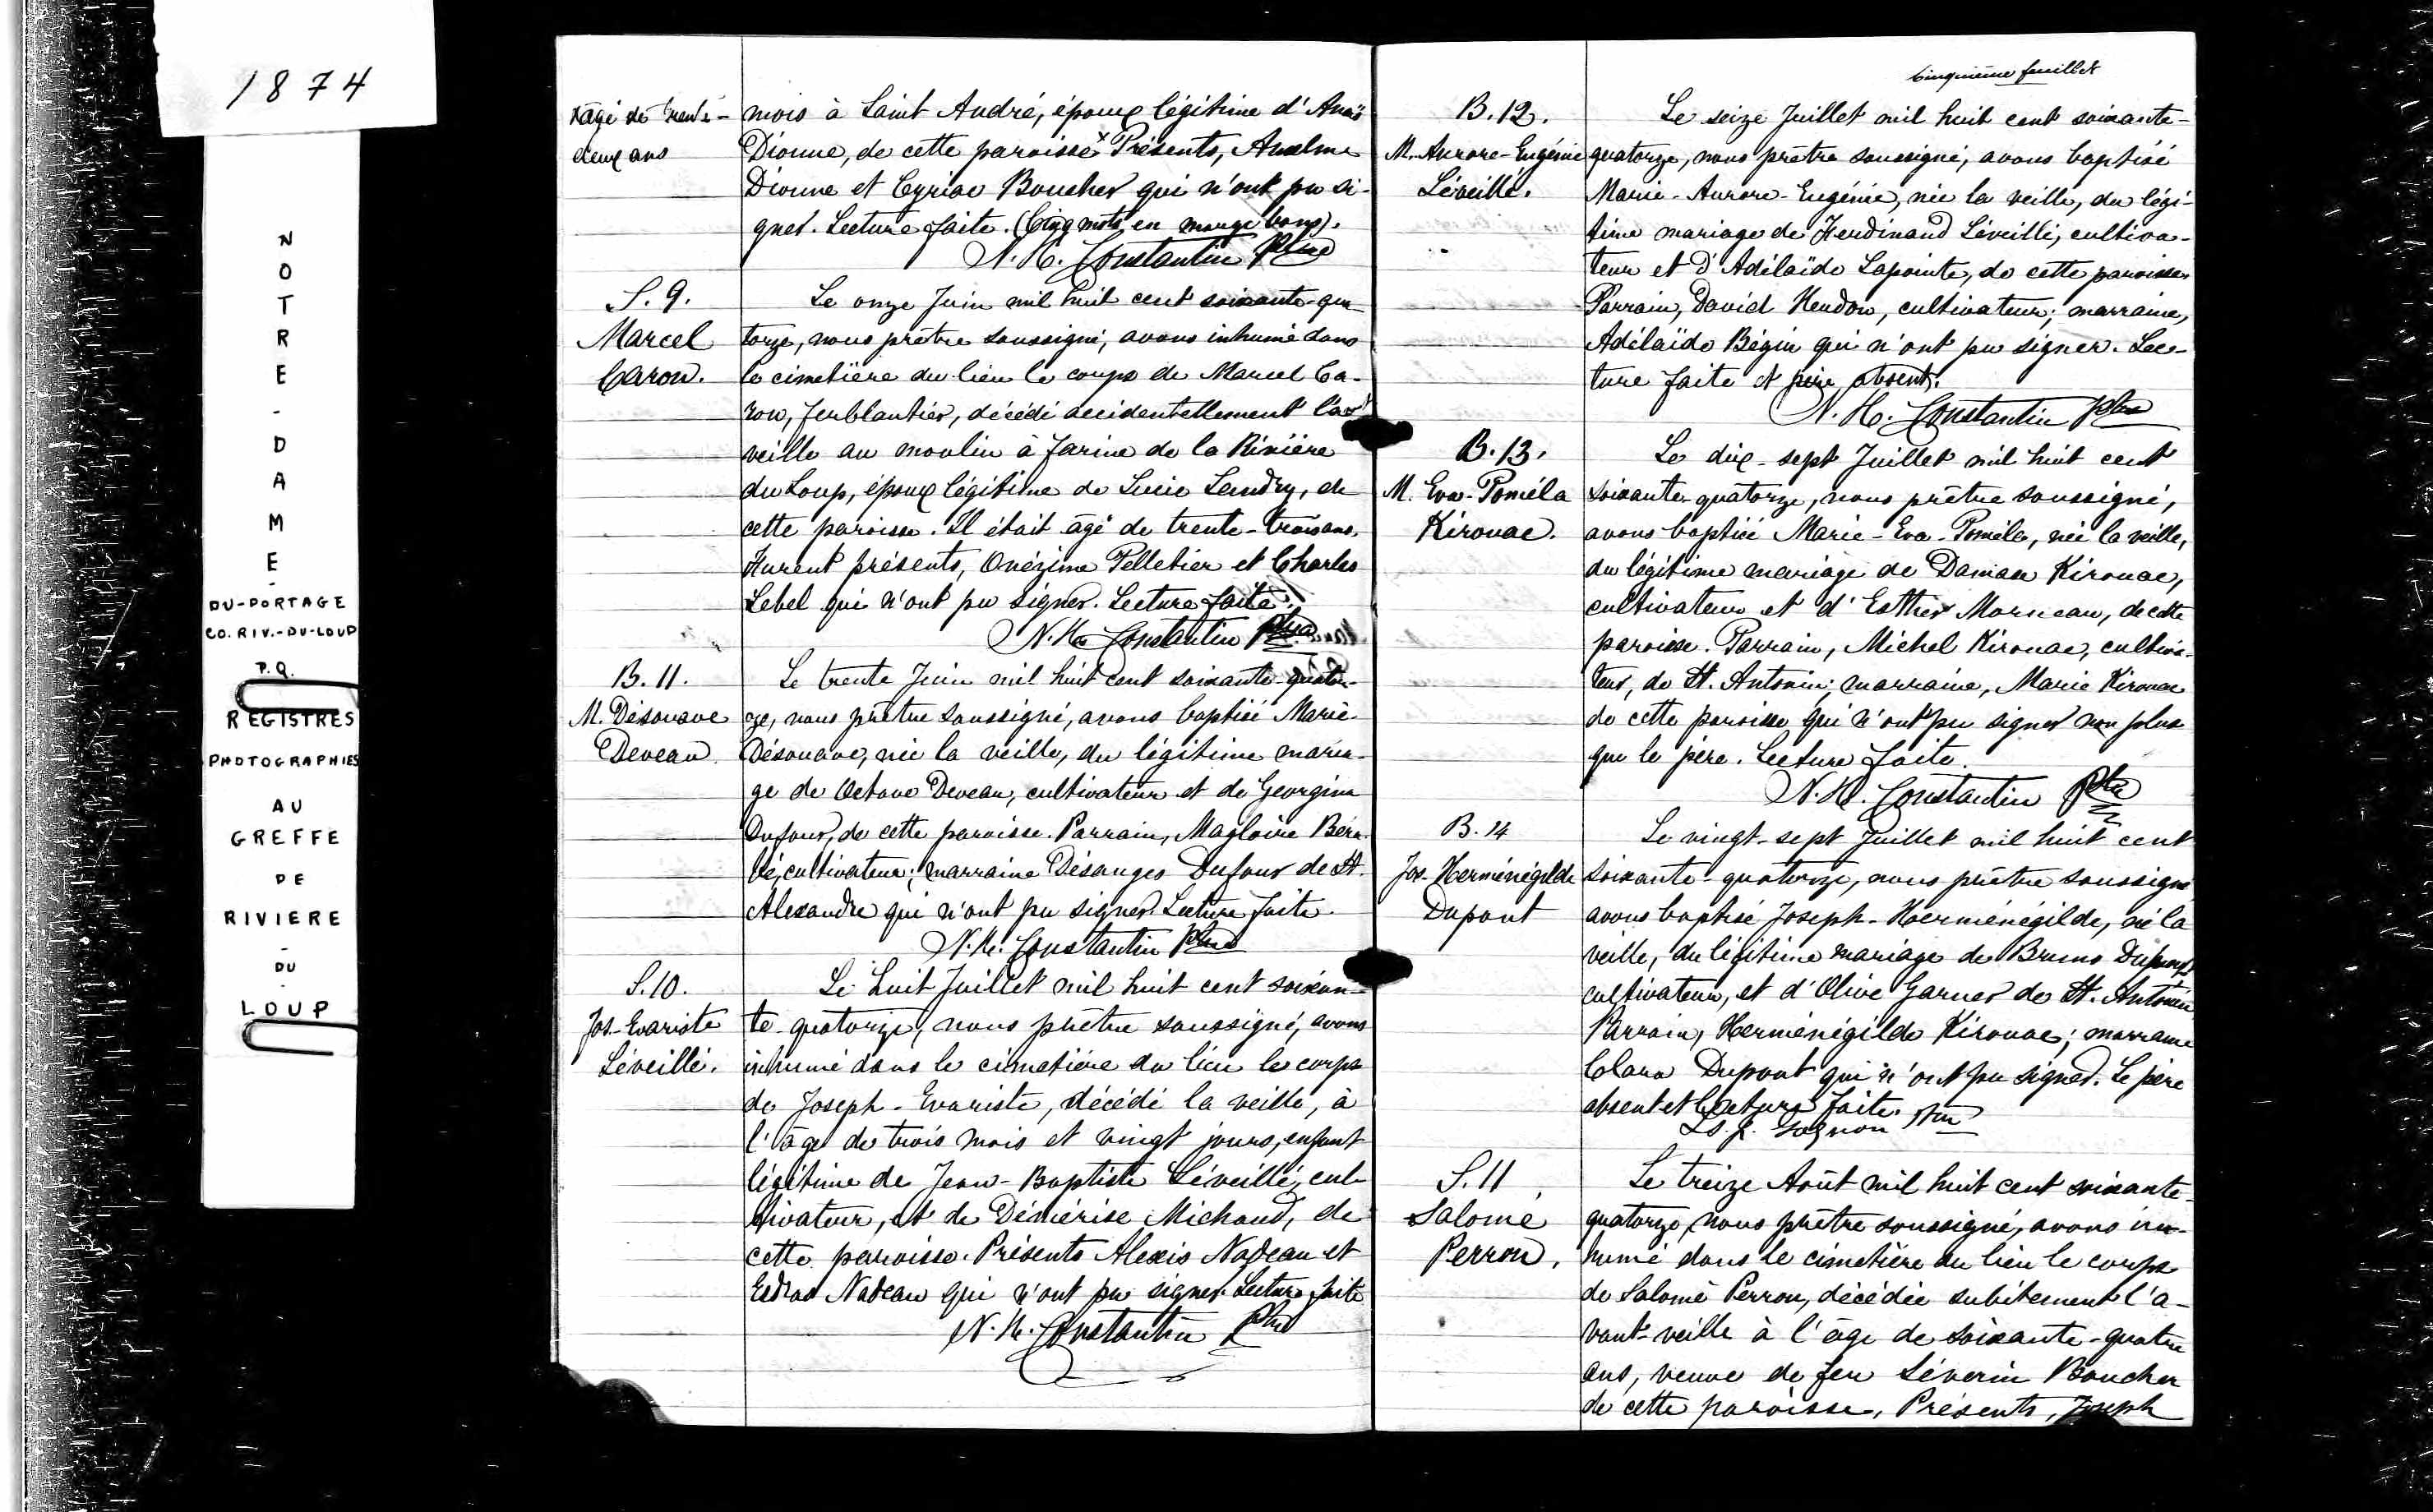 1874
NOTRE-DAME-
DU-PORTAGE
CO. RIV.-DU-LOUP
P.Q.
REGISTRES
PHOTOGRAPHIES
AU
GREFFE
DE
RIVIERE
-
DU
-
LOUP
xâgé de trente-
deux ans
mois à Saint André, époux légitime d'Anaïs
Dionne, de cette paroisse x Présents, Anselme
Dionne et Cyriac Boucher qui n'ont pu si-
gner. Lecture faite. (Cinq mots en marge bons).
N. H. Constantin Ptre
S. 9.
Marcel
Caron.
Le onze Juin mil huit cent soixante-qua-
torze, nous prêtre soussigné, avons inhumé dans
le cimetière du lieu le corps de Marcel Ca-
ron, ferblantier, décédé accidentellement l'av
veille au moulin à farine de la Rivière
du Loup, époux légitime de Lucie Landry, de
cette paroisse. Il était âgé de trente-trois ans.
Furent présents, Onézime Pelletier et Charles
Lebel qui n'ont pu signer. Lecture faite.
N. H. Constantin Ptre
B. 11.
M. Désouave
Deveau.
Le trente Juin mil huit cent soixante-quator-
ze, nous prêtre soussigné, avons baptisé Marie-
Désouave, née la veille, du légitime maria-
ge de Octave Deveau, cultivateur et de Georgina
Dufour, de cette paroisse. Parrain, Magloire Béru-
bé, cultivateur; marraine Désanges Dufour de St.
Alexandre qui n'ont pu signer. Lecture faite.
N. H. Constantin Ptre
S. 10.
Jos-Evariste
Léveillé.
Le huit Juillet mil huit cent soixan-
te-quatorze, nous prêtre soussigné, avons
inhumé dans le cimetière du lieu le corps
de Joseph-Evariste, décédé la veille, à
l'âge de trois mois et vingt jours, enfant
légitime de Jean-Baptiste Léveillé, cul-
tivateur, et de Démérise Michaud, de
cette paroisse. Présents Alexis Nadeau et
Esdras Nadeau qui n'ont pu signer. Lecture faite
N. H. Constantin Ptre
Cinquième feuillet
B. 12.
M. Aurore-Eugénie
Léveillé.
Le seize Juillet mil huit cent soixante-
quatorze, nous prêtre soussigné, avons baptisé
Marie-Aurore-Eugénie, née la veille, du légi-
time mariage de Ferdinand Léveillé, cultiva-
teur et d'Adélaïde Lapointe, de cette paroisse.
Parrain, David Heudon, cultivateur; marraine,
Adélaïde Bégin qui n'ont pu signer. Lec-
ture faite et père absent.
N. H. Constantin Ptre
B. 13.
M. Eva-Poméla
Kirouac.
Le dix-sept Juillet mil huit cent
soixante-quatorze, nous prêtre soussigné,
avons baptisé Marie-Eva-Poméla, née la veille,
du légitime mariage de Damase Kirouac,
cultivateur et d'Esther Morneau, de cette
paroisse. Parrain, Michel Kirouac, cultiva-
teur, de St. Antonin; marraine, Marie Kirouac
de cette paroisse qui n'ont pu signer non plus
que le père. Lecture faite.
N. H. Constantin Ptre
B. 14
Jos-Herménégilde
Dupont
Le vingt-sept Juillet mil huit cent
soixante-quatorze, nous prêtre soussigné
avons baptisé Joseph-Herménégilde, né la
veille, du légitime mariage de Bruno Dupont
cultivateur, et d'Olive Garner de St. Antonin
Parrain, Herménégilde Kirouac; marraine
Clara Dupont qui n'ont pu signer. Le père
absent et Lecture faite.
Ls. J. Gagnon Ptre
S. 11.
Salomé
Perron.
Le treize Août mil huit cent soixante-
quatorze, nous prêtre soussigné, avons inhu-
humé dans le cimetière du lieu le corps
de Salomé Perron, décédée subitement l'a-
vant-veille à l'âge de soixante-quatre
ans, veuve de feu Séverin Boucher
de cette paroisse. Présents, Joseph